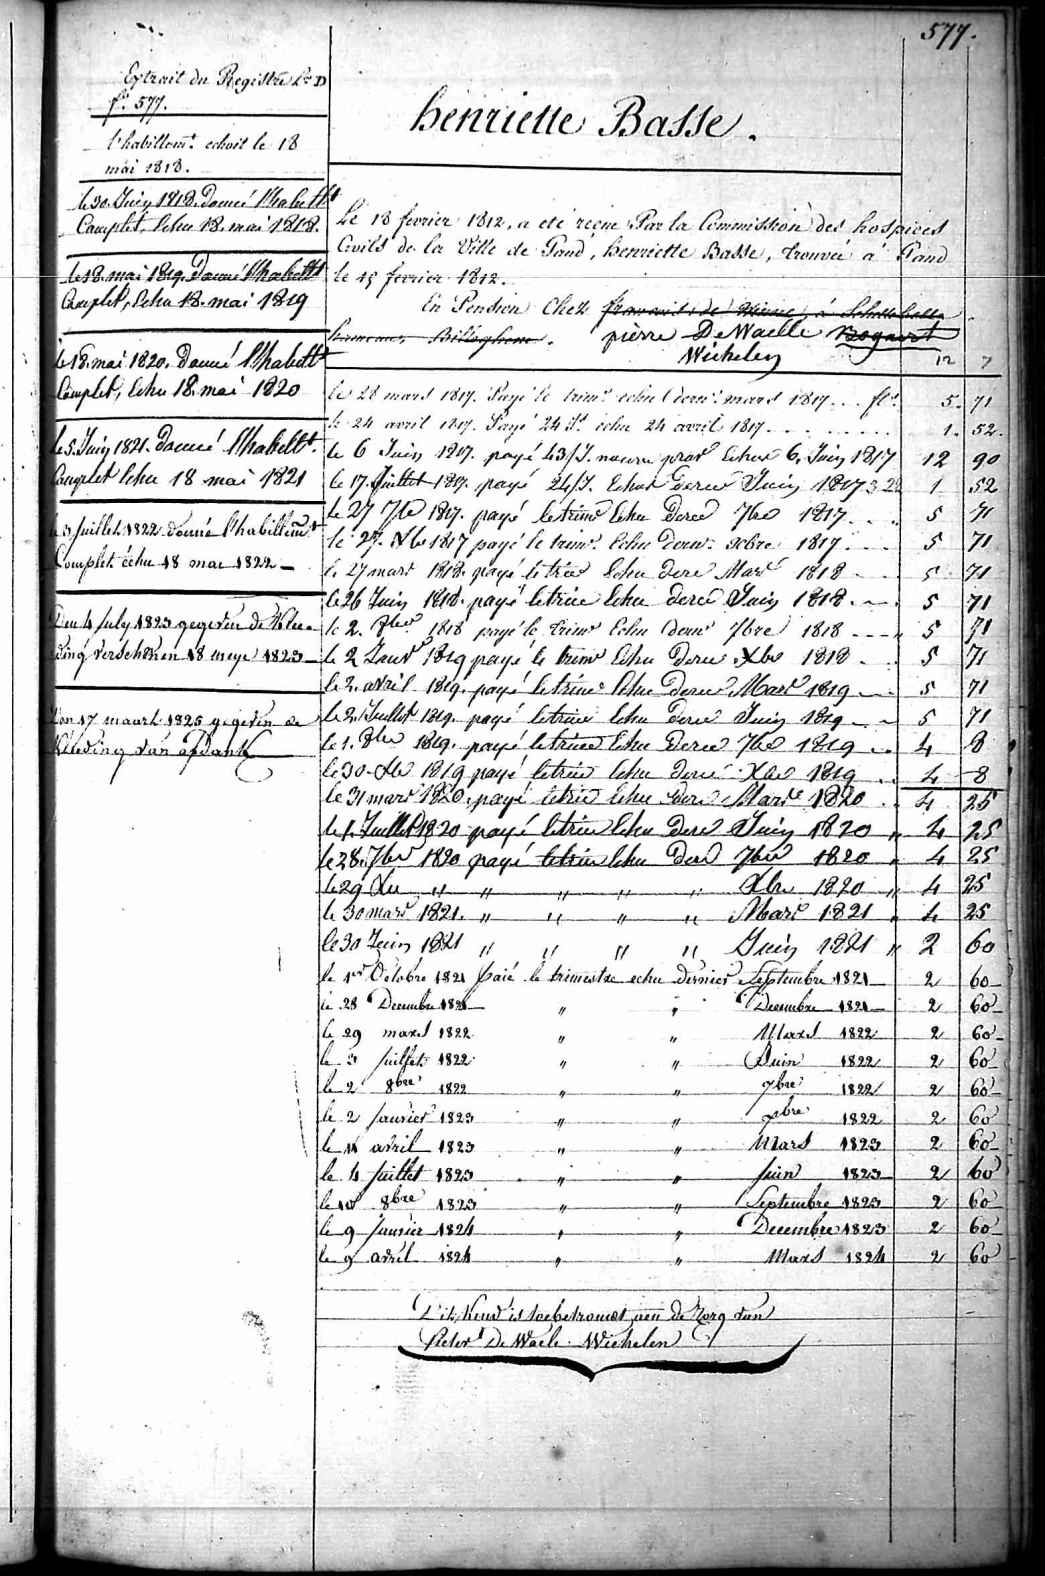 577.
Extrait du Registre Lre D
fo. 577.
l'habillemt. echoit le 18
mai 1818.
le 30. Juin 1818. Donné l'habellt
Complet, Echu 18. mai 1818.
le 18. mai 1819. Donné l'habellt
Complet, Echu 18. mai 1819
le 18. mai 1820. Donné l'habellt
Complet, Echu 18. mai 1820
le 5. Juin 1821. Donné l'habellt.
Complet Echu 18 mai 1821
le 3 Juillet 1822 donné l'habillemt
Complet. échu 18 mai 1822 —
Den 4 July 1823 gegeven de Klee-
ding verschenen 18 meye 1823 —
Den 17 maart 1825 gegeven de
Kleeding van afdank
henriette Basse.
Le 18 fevrier 1812, a eté reçue Par la Commission des hospices
Civils de la Ville de Gand, henriette Basse, trouvée à Gand
le 15 fevrier 1812.
En Pension Chez
pierre De Waelle Bogaert
Wichelen
12 7
le 28 mars 1817. Payé le trimr. echu derr. mars 1817 . . . fls. 5. 71
le 24 avril 1817. Payé 24 Js. echu 24 avril 1817 . . . . . . 1. 52.
le 6 Juin 1817. payé 43/J. Echus 6. Juin 1817 12 90
le 17. Juillet 1817. payé 24/J. Echus Juin 1817 1 52
le 27 7bre 1817. payé le trimr Echu 7bre 1817 5 71
le 27. Xbre 1817 payé le trimr. Echu derr. xbre 1817 5 71
le 27 mars 1818. payé le Echu Mars 1818 5 71
le 26 Juin 1818. payé le Echu Juin 1818. 5 71
le 2. 8bre 1818 payé le trimr Echu 7bre 1818 5 71
le 2 Janvr 1819 payé le trimr Echu Xbre 1818 5 71
le 2. avril 1819. payé le Echu Mars 1819 5 71
le 2. Juillet 1819. payé le Echu Juin 1819 5 71
le 1. 8bre 1819. payé le Echu 7bre 1819 4 8
le 30 Xbre 1819 payé le Echu Xbre 1819 4 8
le 31 mars 1820. payé le Echu Mars 1820 4 25
le 1. Juillet 1820 payé le Echu Juin 1820 " 4 25
le 28. 7bre 1820 payé le Echu 7bre 1820 " 4 25
le 29 Xre " " " " " Xbre 1820 " 4 25
le 30 mars 1821. " " " " Mars 1821 " 4 25
le 30 Juin 1821 " " " " Juin 1821 " 2 60
le 1er Octobre 1821 Paié le trimestre echu dernier Septembre 1821 2 60
le 28 Decembre 1821 " " Decembre 1821 2 60
le 29 mars 1822 " " Mars 1822 2 60
le 3 juillet 1822 " " Juin 1822 2 60
le 2 8bre 1822 " " 7bre 1822 2 60
le 2 janvier 1823 " " 1822 2 60
le avril 1823 " " Mars 1823 2 60
le 4 juillet 1823 " " juin 1823 2 60
le 10 8bre 1823 " " Septembre 1823 2 60
le 9 janvier 1824 " " Decembre 1823 2 60
le 9 avril 1824 " " Mars 1824 2 60
Dit kind is toebetrouwt aen de zorg van
Pieter De Waele Wichelen